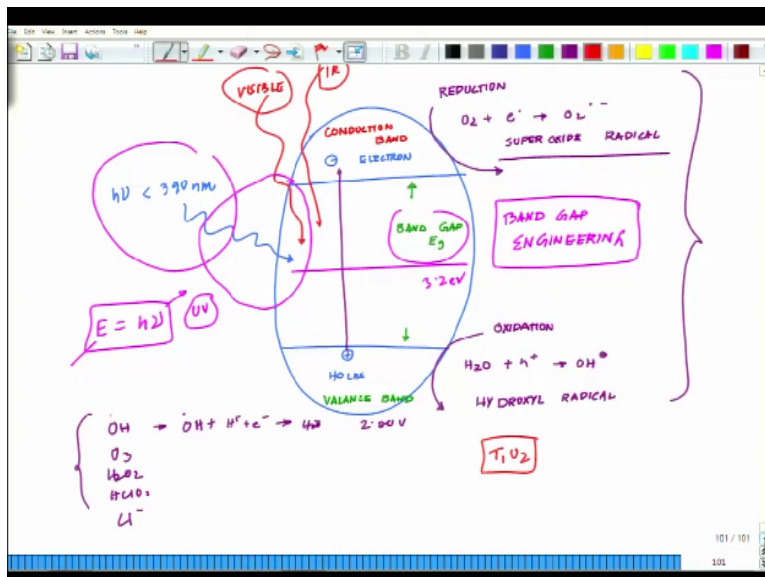 File Edit View Insert Actions Tools Help
VISIBLE
IR
REDUCTION
O2 + e- → O2•-
SUPEROXIDE RADICAL
CONDUCTION
BAND
ELECTRON
hν < 390nm
BAND GAP
Eg
BAND GAP
ENGINEERING
3.2eV
E = hν
UV
OXIDATION
H2O + h+ → OH•
HYDROXYL RADICAL
HOLE
VALANCE BAND
OH → OH + H+ + e- →
O3
H2O2
HClO2
Cl-
TiO2
101 / 101
101